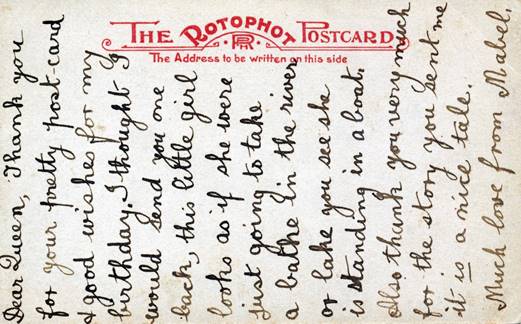 THE ROTOPHOT POSTCARD
RPH
The Address to be written on this side
Dear Queen, Thank you
for your pretty post-card
& good wishes for my
birthday. I thought I
would send you one
back, this little girl
looks as if she were
just going to take
a bathe in the river
or lake you see she
is standing in a boat.
Also thank you very much
for the story you sent me
it is a nice tale.
Much love from Mabel.